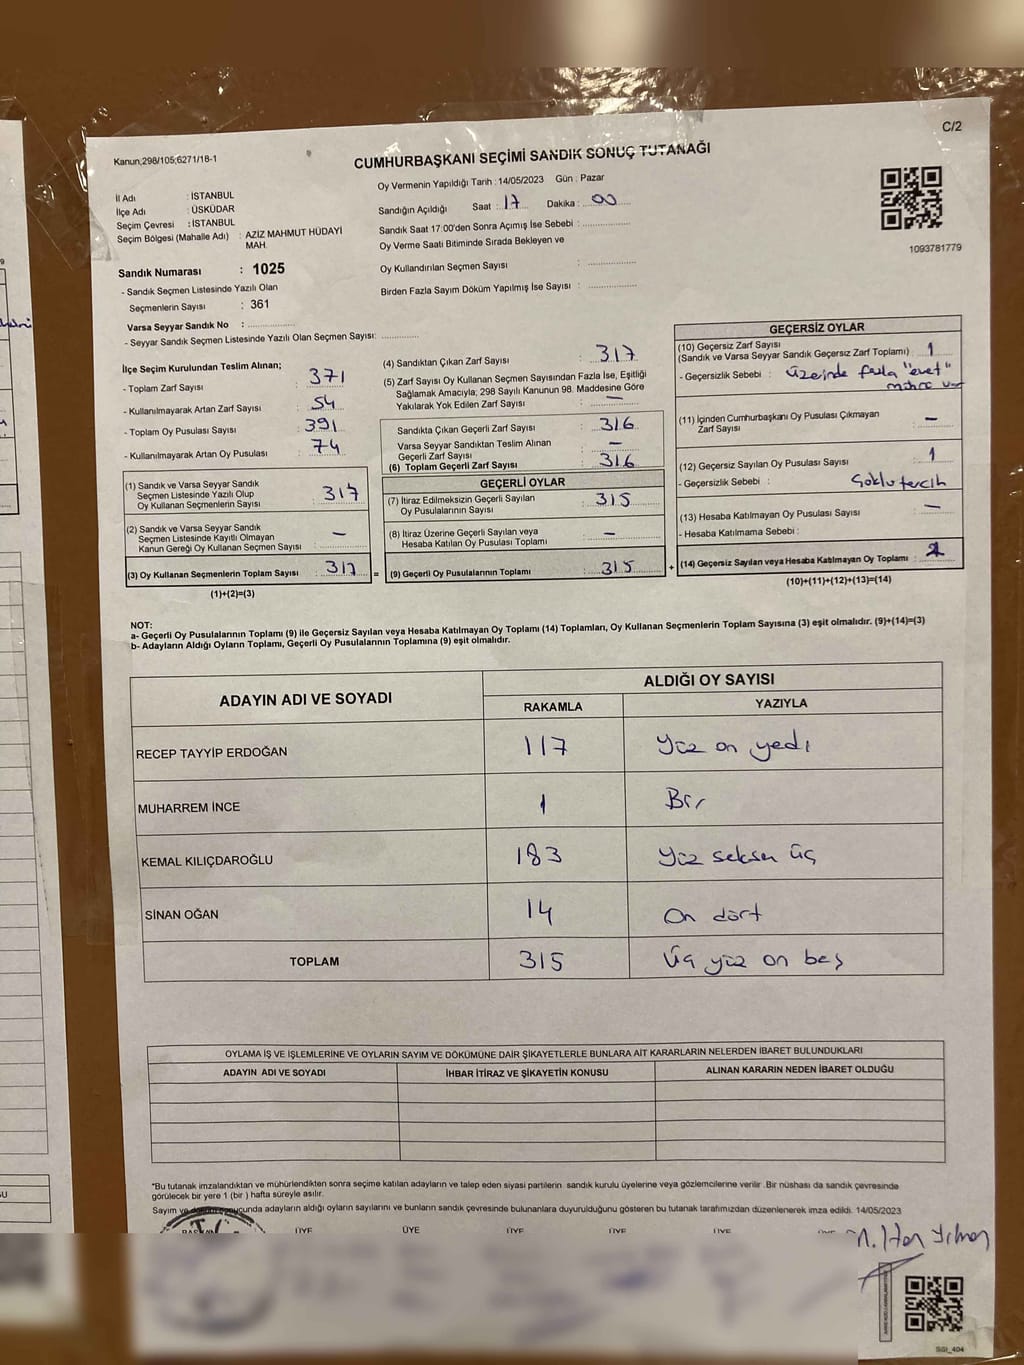 C/2
Kanun;298/105;6271/18-1
CUMHURBAŞKANI SEÇİMİ SANDIK SONUÇ TUTANAĞI
Oy Vermenin Yapıldığı Tarih : 14/05/2023 Gün : Pazar
İl Adı : İSTANBUL
İlçe Adı : ÜSKÜDAR
Seçim Çevresi : İSTANBUL
Seçim Bölgesi (Mahalle Adı) : AZİZ MAHMUT HÜDAYİ MAH.
Sandığın Açıldığı Saat : 17 Dakika : 00
Sandık Saat 17.00'den Sonra Açımış İse Sebebi :
Oy Verme Saati Bitiminde Sırada Bekleyen ve
Oy Kullandırılan Seçmen Sayısı :
Birden Fazla Sayım Döküm Yapılmış İse Sayısı :
1093781779
Sandık Numarası : 1025
- Sandık Seçmen Listesinde Yazılı Olan
Seçmenlerin Sayısı : 361
Varsa Seyyar Sandık No :
- Seyyar Sandık Seçmen Listesinde Yazılı Olan Seçmen Sayısı:
İlçe Seçim Kurulundan Teslim Alınan;
- Toplam Zarf Sayısı : 371
- Kullanılmayarak Artan Zarf Sayısı : 54
- Toplam Oy Pusulası Sayısı : 391
- Kullanılmayarak Artan Oy Pusulası : 74
(1) Sandık ve Varsa Seyyar Sandık
Seçmen Listesinde Yazılı Olup
Oy Kullanan Seçmenlerin Sayısı : 317
(2) Sandık ve Varsa Seyyar Sandık
Seçmen Listesinde Kayıtlı Olmayan
Kanun Gereği Oy Kullanan Seçmen Sayısı : –
(3) Oy Kullanan Seçmenlerin Toplam Sayısı : 317
(1)+(2)=(3)
(4) Sandıktan Çıkan Zarf Sayısı : 317
(5) Zarf Sayısı Oy Kullanan Seçmen Sayısından Fazla İse, Eşitliği
Sağlamak Amacıyla; 298 Sayılı Kanunun 98. Maddesine Göre
Yakılarak Yok Edilen Zarf Sayısı : –
Sandıkta Çıkan Geçerli Zarf Sayısı : 316
Varsa Seyyar Sandıktan Teslim Alınan
Geçerli Zarf Sayısı : –
(6) Toplam Geçerli Zarf Sayısı : 316
GEÇERLİ OYLAR
(7) İtiraz Edilmeksizin Geçerli Sayılan
Oy Pusulalarının Sayısı : 315
(8) İtiraz Üzerine Geçerli Sayılan veya
Hesaba Katılan Oy Pusulası Toplamı : –
= (9) Geçerli Oy Pusulalarının Toplamı : 315 +
GEÇERSİZ OYLAR
(10) Geçersiz Zarf Sayısı
(Sandık ve Varsa Seyyar Sandık Geçersiz Zarf Toplamı) : 1
- Geçersizlik Sebebi : üzeinde fazla "evet"
mührü var
(11) İçinden Cumhurbaşkanı Oy Pusulası Çıkmayan
Zarf Sayısı : –
(12) Geçersiz Sayılan Oy Pusulası Sayısı : 1
- Geçersizlik Sebebi : Çoklu tercih
(13) Hesaba Katılmayan Oy Pusulası Sayısı : –
- Hesaba Katılmama Sebebi :
(14) Geçersiz Sayılan veya Hesaba Katılmayan Oy Toplamı : 2
(10)+(11)+(12)+(13)=(14)
NOT:
a- Geçerli Oy Pusulalarının Toplamı (9) ile Geçersiz Sayılan veya Hesaba Katılmayan Oy Toplamı (14) Toplamları, Oy Kullanan Seçmenlerin Toplam Sayısına (3) eşit olmalıdır. (9)+(14)=(3)
b- Adayların Aldığı Oyların Toplamı, Geçerli Oy Pusulalarının Toplamına (9) eşit olmalıdır.
ADAYIN ADI VE SOYADI
ALDIĞI OY SAYISI
RAKAMLA YAZIYLA
RECEP TAYYİP ERDOĞAN 117 Yüz on yedi
MUHARREM İNCE 1 Bir
KEMAL KILIÇDAROĞLU 183 Yüz seksen üç
SİNAN OĞAN 14 On dört
TOPLAM 315 Üç yüz on beş
OYLAMA İŞ VE İŞLEMLERİNE VE OYLARIN SAYIM VE DÖKÜMÜNE DAİR ŞİKAYETLERLE BUNLARA AİT KARARLARIN NELERDEN İBARET BULUNDUKLARI
ADAYIN ADI VE SOYADI İHBAR İTİRAZ VE ŞİKAYETİN KONUSU ALINAN KARARIN NEDEN İBARET OLDUĞU
*Bu tutanak imzalandıktan ve mühürlendikten sonra seçime katılan adayların ve talep eden siyasi partilerin sandık kurulu üyelerine veya gözlemcilerine verilir .Bir nüshası da sandık çevresinde
görülecek bir yere 1 (bir ) hafta süreyle asılır.
Sayım ve adayların aldığı oyların sayılarını ve bunların sandık çevresinde bulunanlara duyurulduğunu gösteren bu tutanak tarafımızdan düzenlenerek imza edildi. 14/05/2023
ÜYE ÜYE ÜYE ÜYE ÜYE
SGI_404